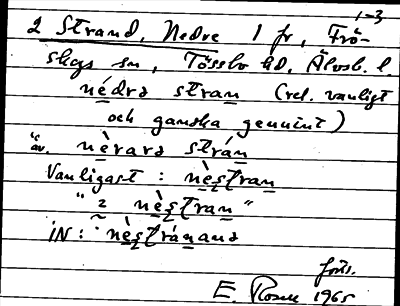 1-3
2 Strand, Nedre 1 fr, Frö-
skogs sn, Tössbo hd, Älvsb. l
nédrə stran (rel. vanligt
och ganska genuint)
"c av. nèrarə strán
Vanligast : nèʂtran
" 2 nèʂtran "
IN: nèʂtránanə
förs.
E. Rosen 1965